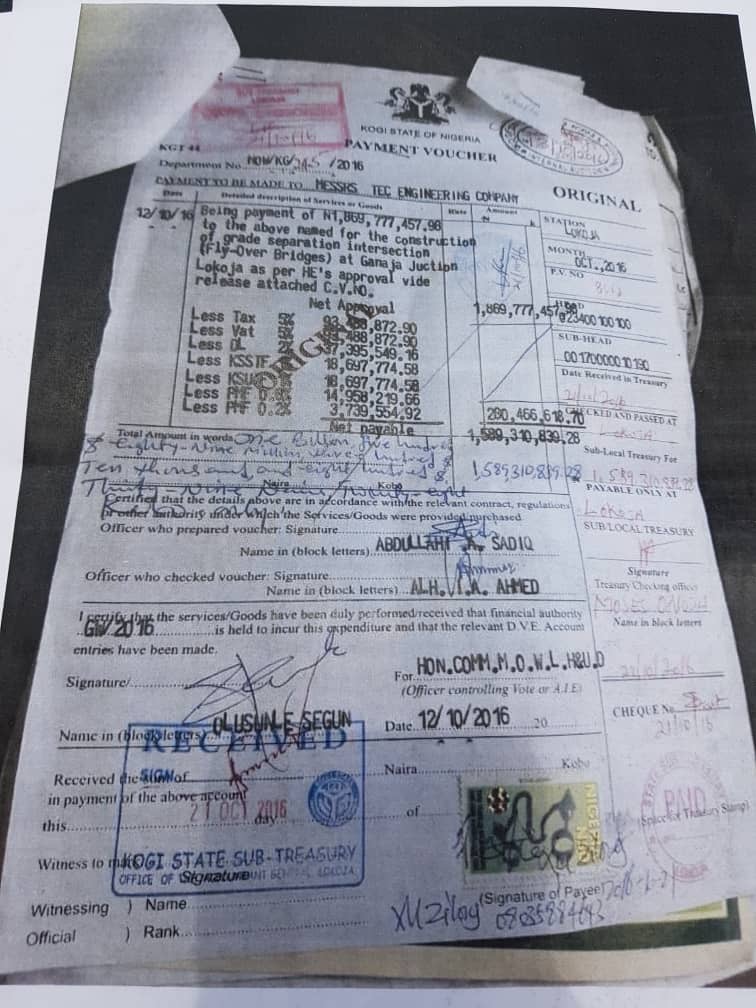 21/10/16
KOGI STATE OF NIGERIA
PAYMENT VOUCHER
KGT 44
ORIGINAL
Department No. MOW/KG/345/2016
PAYMENT TO BE MADE TO MESSRS TEC ENGINEERING COMPANY
Date Detailed description of Services or Goods Rate Amount
N
STATION
LOKOJA
MONTH
OCT.,2016
P.V. NO
12/10/16 Being payment of N1,869,777,457.98
to the above named for the construction
of grade separation intersection
(Fly-Over Bridges) at Ganaja Juction
Lokoja as per HE's approval vide
release attached C.V.NO.
21/10/16
Net Approval 1,869,777,457.98
HEAD
023400100100
SUB-HEAD
00 1700000 10 190
Date Received in Treasury
21/10/2016
Less Tax 5% 93,488,872.90
Less Vat 5% 93,488,872.90
Less DL 2% 37,395,549.16
Less KSSTF 18,697,774.58
Less KSU 18,697,774.58
Less PMF 0.8% 14,958,219.66
Less PMF 0.2% 3,739,554.92 280,466,618.70
ORIGINAL
Net payable 1,589,310,839.28
CHECKED AND PASSED AT
LOKOJA
Sub-Local Treasury For
1,589,310,839.28
PAYABLE ONLY AT
Lokoja
SUB/LOCAL TREASURY
Total Amount in words One Billion, five hundred
& Eighty-Nine Million, three hundred &
Ten thousand and eight hundred & 1,589,310,839.28
Thirty Nine Naira Twenty-eight
Naira Kobo
Certified that the details above are in accordance with the relevant contract, regulations
or other authority under which the Services/Goods were provided/purchased
Officer who prepared voucher: Signature
Name in (block letters) ABDULLAHI A. SADIQ
Officer who checked voucher: Signature
Name in (block letters) ALH. Y.A. AHMED
Signature
Treasury Checking officer
MOSES
Name in block letters
I certify that the services/Goods have been duly performed/received that financial authority
GW/2016 is held to incur this expenditure and that the relevant D.V.E. Account
entries have been made.
Signature/
For HON.COMM.M.O.W.L.H&U.D
(Officer controlling Vote or A.I.E)
21/10/2016
Name in (block letters) OLUSUNLE SEGUN
Date 12/10/2016 20
CHEQUE No
21/10/16
RECEIVED
Received the sum of Naira Kobo
SIGN
in payment of the above account
this day of
21 OCT 2016
PAID
(Space for Treasury Stamp)
Witness to mark
KOGI STATE SUB-TREASURY
OFFICE OF ACCOUNTANT GENERAL LOKOJA
Signature
NIGERIA
(Signature of Payee)
Witnessing ) Name
Official ) Rank